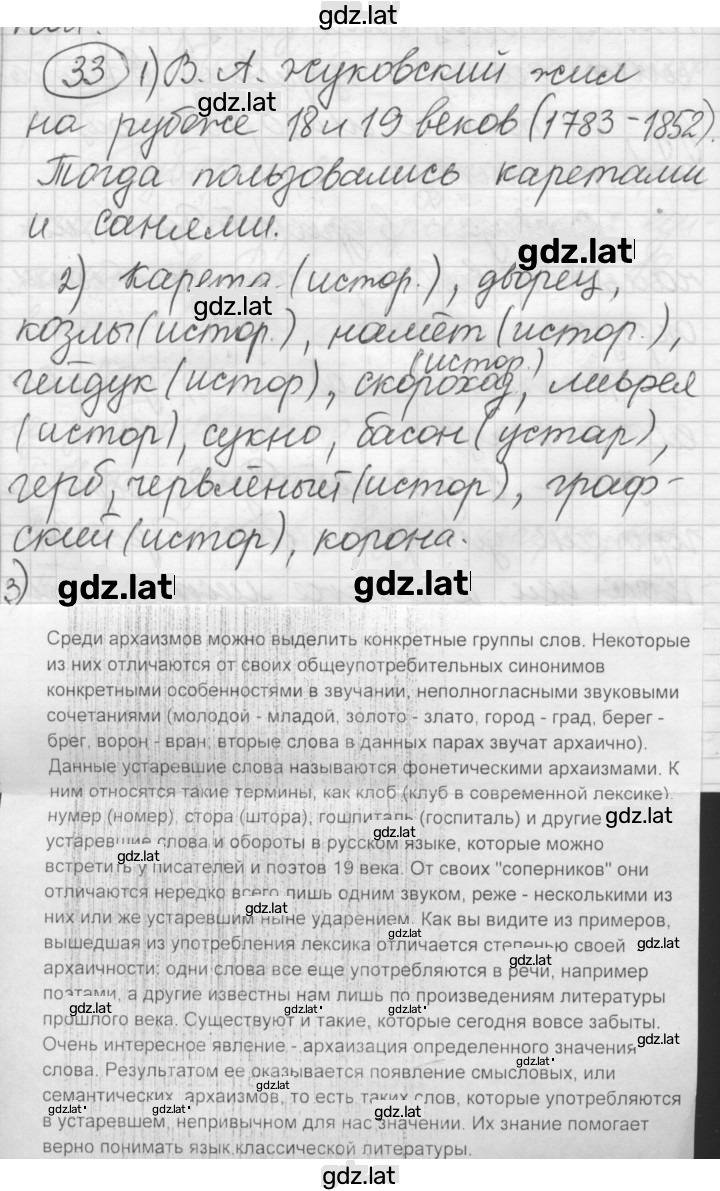 gdz.lat
33 1) В. А. Жуковский жил
gdz.lat
на рубеже 18 и 19 веков (1783-1852).
Тогда пользовались каретами
и санями.
gdz.lat
2) Карета (истор.), дворец,
gdz.lat
козлы (истор.), намёт (истор.),
(истор.)
гейдук (истор), скороход, ливрея
(истор), сукно, басон (устар),
герб, червлёный (истор), граф-
ский (истор), корона.
3)
gdz.lat gdz.lat
Среди архаизмов можно выделить конкретные группы слов. Некоторые
из них отличаются от своих общеупотребительных синонимов
конкретными особенностями в звучании, неполногласными звуковыми
сочетаниями (молодой - младой, золото - злато, город - град, берег -
брег, ворон - вран; вторые слова в данных парах звучат архаично).
Данные устаревшие слова называются фонетическими архаизмами. К
ним относятся такие термины, как клоб (клуб в современной лексике),
нумер (номер), стора (штора), гошпиталь (госпиталь) и другие
gdz.lat
gdz.lat
устаревшие слова и обороты в русском языке, которые можно
gdz.lat
встретить у писателей и поэтов 19 века. От своих "соперников" они
отличаются нередко всего лишь одним звуком, реже - несколькими из
gdz.lat
них или же устаревшим ныне ударением. Как вы видите из примеров,
gdz.lat
вышедшая из употребления лексика отличается степенью своей
gdz.lat
gdz.lat
архаичности: одни слова все еще употребляются в речи, например
поэтами, а другие известны нам лишь по произведениям литературы
gdz.lat gdz.lat gdz.lat
прошлого века. Существуют и такие, которые сегодня вовсе забыты.
Очень интересное явление - архаизация определенного значения
gdz.lat
gdz.lat
слова. Результатом ее оказывается появление смысловых, или
gdz.lat
семантических, архаизмов, то есть таких слов, которые употребляются
gdz.lat gdz.lat gdz.lat
в устаревшем, непривычном для нас значении. Их знание помогает
верно понимать язык классической литературы.
gdz.lat